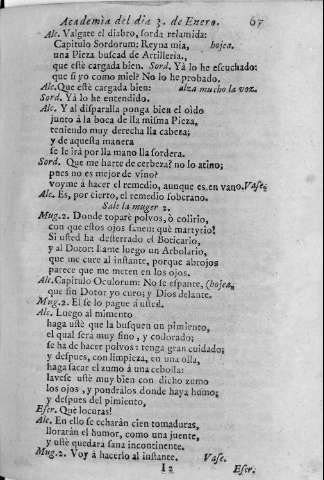 Academia del dia 3. de Enero. 67
Alc. Valgate el diabro, sorda relamida:
Capitulo Sordorum: Reyna mia, hojea.
una Pieza buscad de Artilleria,
que estè cargada bien. Sord. Yá lo he escuchado:
que si yo como miel? No lo he probado.
Alc. Que estè cargada bien: alza mucho la voz.
Sord. Yá lo he entendido.
Alc. Y al disparalla ponga bien el oìdo
junto á la boca de lla misma Pieza,
teniendo muy derecha lla cabeza;
y de aquesta manera
se le irá por lla mano lla sordera.
Sord. Que me harte de cerbeza? no lo atino;
pues no es mejor de vino?
voyme á hacer el remedio, aunque es en vano. Vase.
Alc. Es, por cierto, el remedio soberano.
Sale la muger 2.
Mug.2. Donde toparè polvos, ò colirio,
con que estos ojos sanen: què martyrio!
Si usted ha desterrado el Boticario,
y al Dotor: llame luego un Arbolario,
que me cure al instante, porque abrojos
parece que me meten en los ojos.
Alc. Capitulo Oculorum: No se espante, (hojea,
que sin Dotor yo curo; y Dios delante.
Mug.2. El se lo pague á usted.
Alc. Luego al mimento
haga ustè que la busquen un pimiento,
el qual sera muy fino, y collorado;
se ha de hacer polvos: tenga gran cuidado;
y despues, con limpieza, en una olla,
haga sacar el zumo á una cebolla:
lavese ustè muy bien con dicho zumo
los ojos, y pondrálos donde haya humo;
y despues del pimiento,
Escr. Que locuras!
Alc. En ello se echarán cien tomaduras,
llorarán el humor, como una juente,
y ustè quedara sana incontinente.
Mug.2. Voy á hacerlo al instante. Vase.
I 2 Escr.